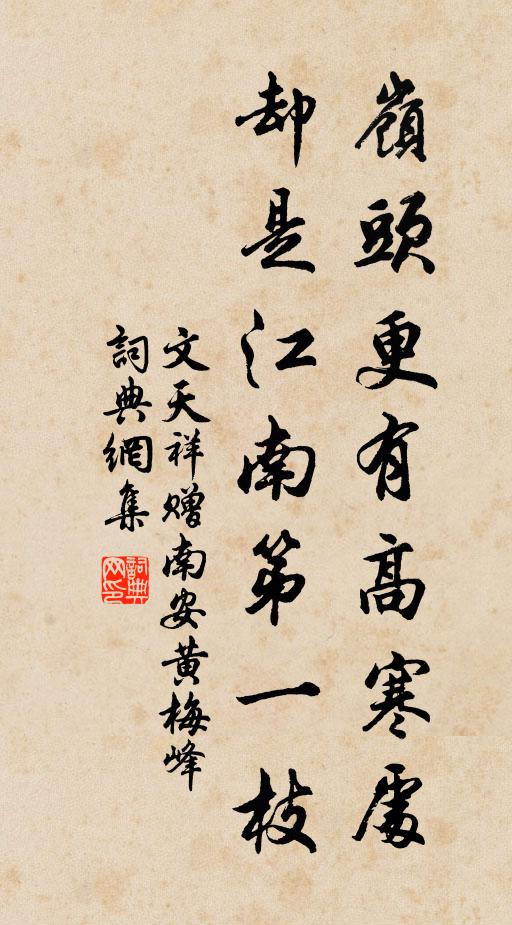 嶺頭更有高寒處
却是江南第一枝
文天祥贈南安黄梅峰
詞典網集
詞典网印